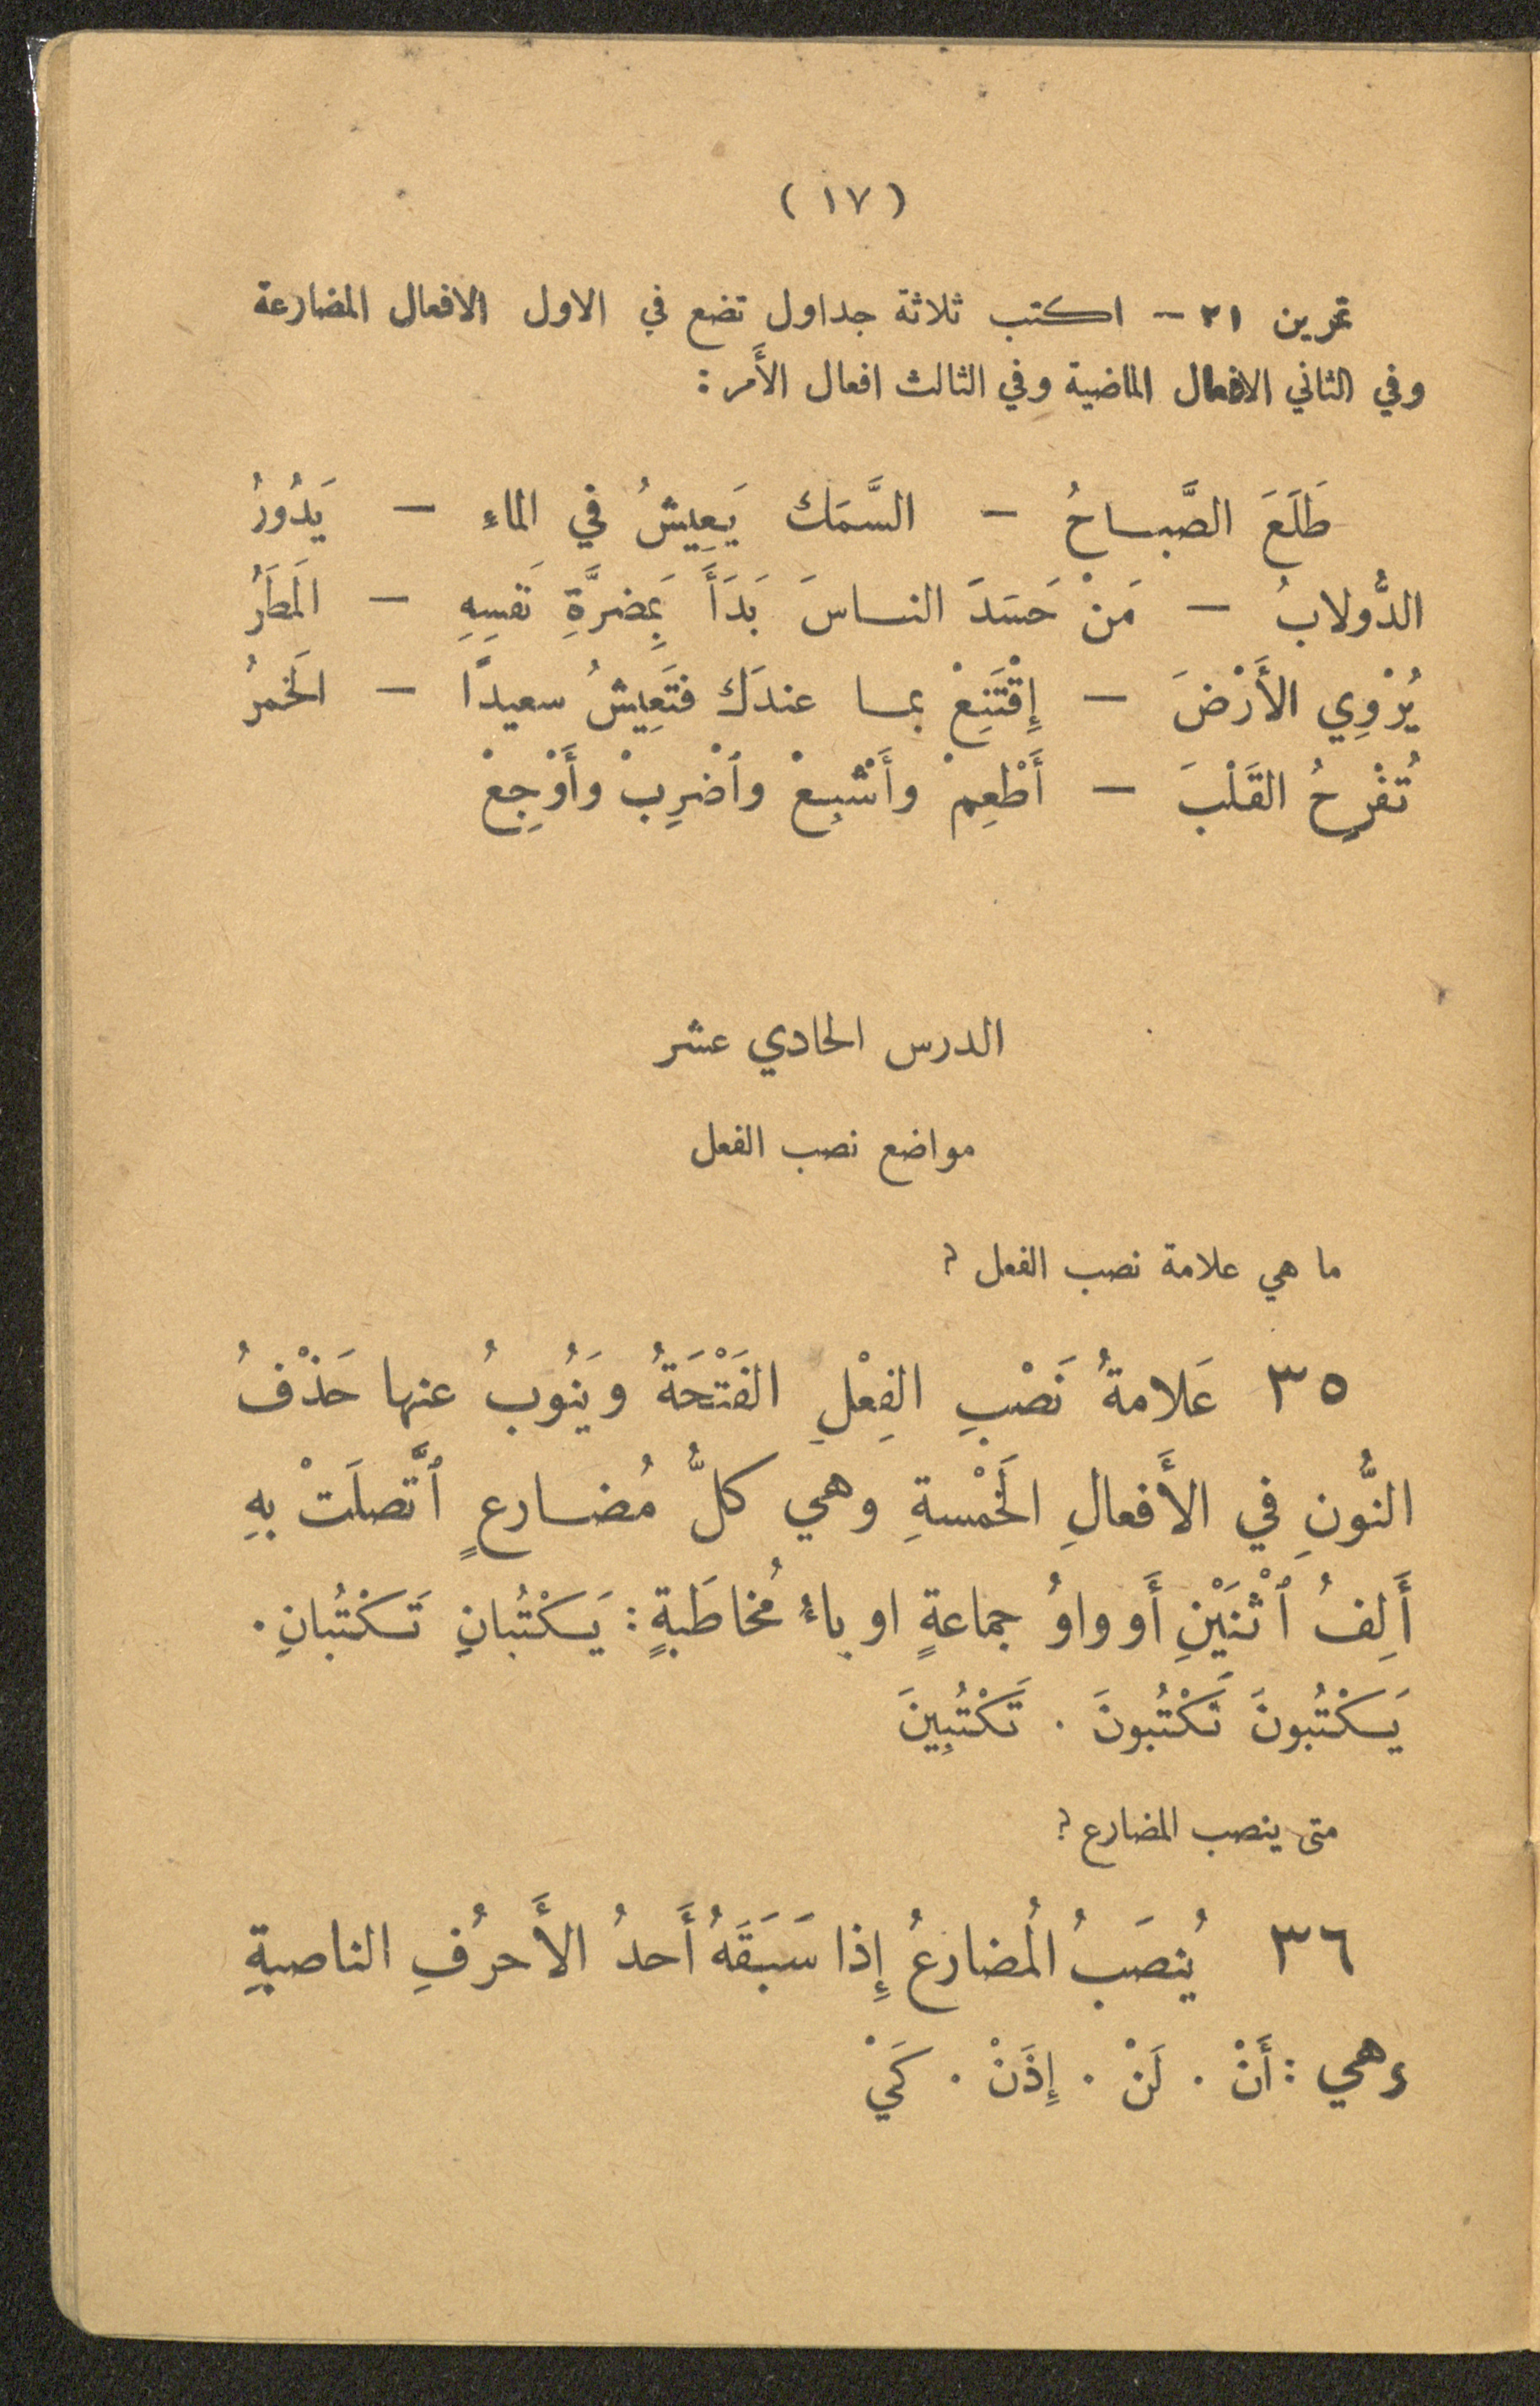 ( ١٧ )
تمرين ٢١ – اكتب ثلاثة جداول تضع في الاول الافعال المضارعة
وفي الثاني الافعال الماضية وفي الثالث افعال الأَمر :
طَلَعَ الصَّباحُ – السَّمَك يَعِيشُ في الماءِ – يَدُورُ
الدُّولابُ – مَنْ حَسَدَ الناسَ بَدَأَ بِمَضرَّةِ نَفسِهِ – المَطَرُ
يُرْوِي الأَرْضَ – إِقْتَنِعْ بما عندَك فتَعِيشُ سعيدًا – الخَمرُ
تُفْرِحُ القَلْبَ – أَطْعِمْ وأَشْبِعْ وٱضْرِبْ وأَوْجِعْ
الدرس الحادي عشر
مواضع نصب الفعل
ما هي علامة نصب الفعل ؟
٣٥ عَلامةُ نَصْبِ الفِعْلِ الفَتْحَةُ ويَنُوبُ عنها حَذْفُ
النُّونِ في الأَفعالِ الخَمْسةِ وهي كلُّ مُضارعٍ ٱتَّصلَتْ بهِ
أَلِفُ ٱثْنَيْنِ أَو واوُ جماعةٍ او ياءُ مُخاطَبةٍ : يَكْتُبانِ تَكْتُبانِ .
يَكْتُبونَ تَكْتُبونَ . تَكْتُبِينَ
متى ينصب المضارع ؟
٣٦ يُنصَبُ المُضارعُ إِذا سَبَقَهُ أَحدُ الأَحرُفِ الناصبةِ
وهي : أَنْ . لَنْ . إِذَنْ . كَيْ